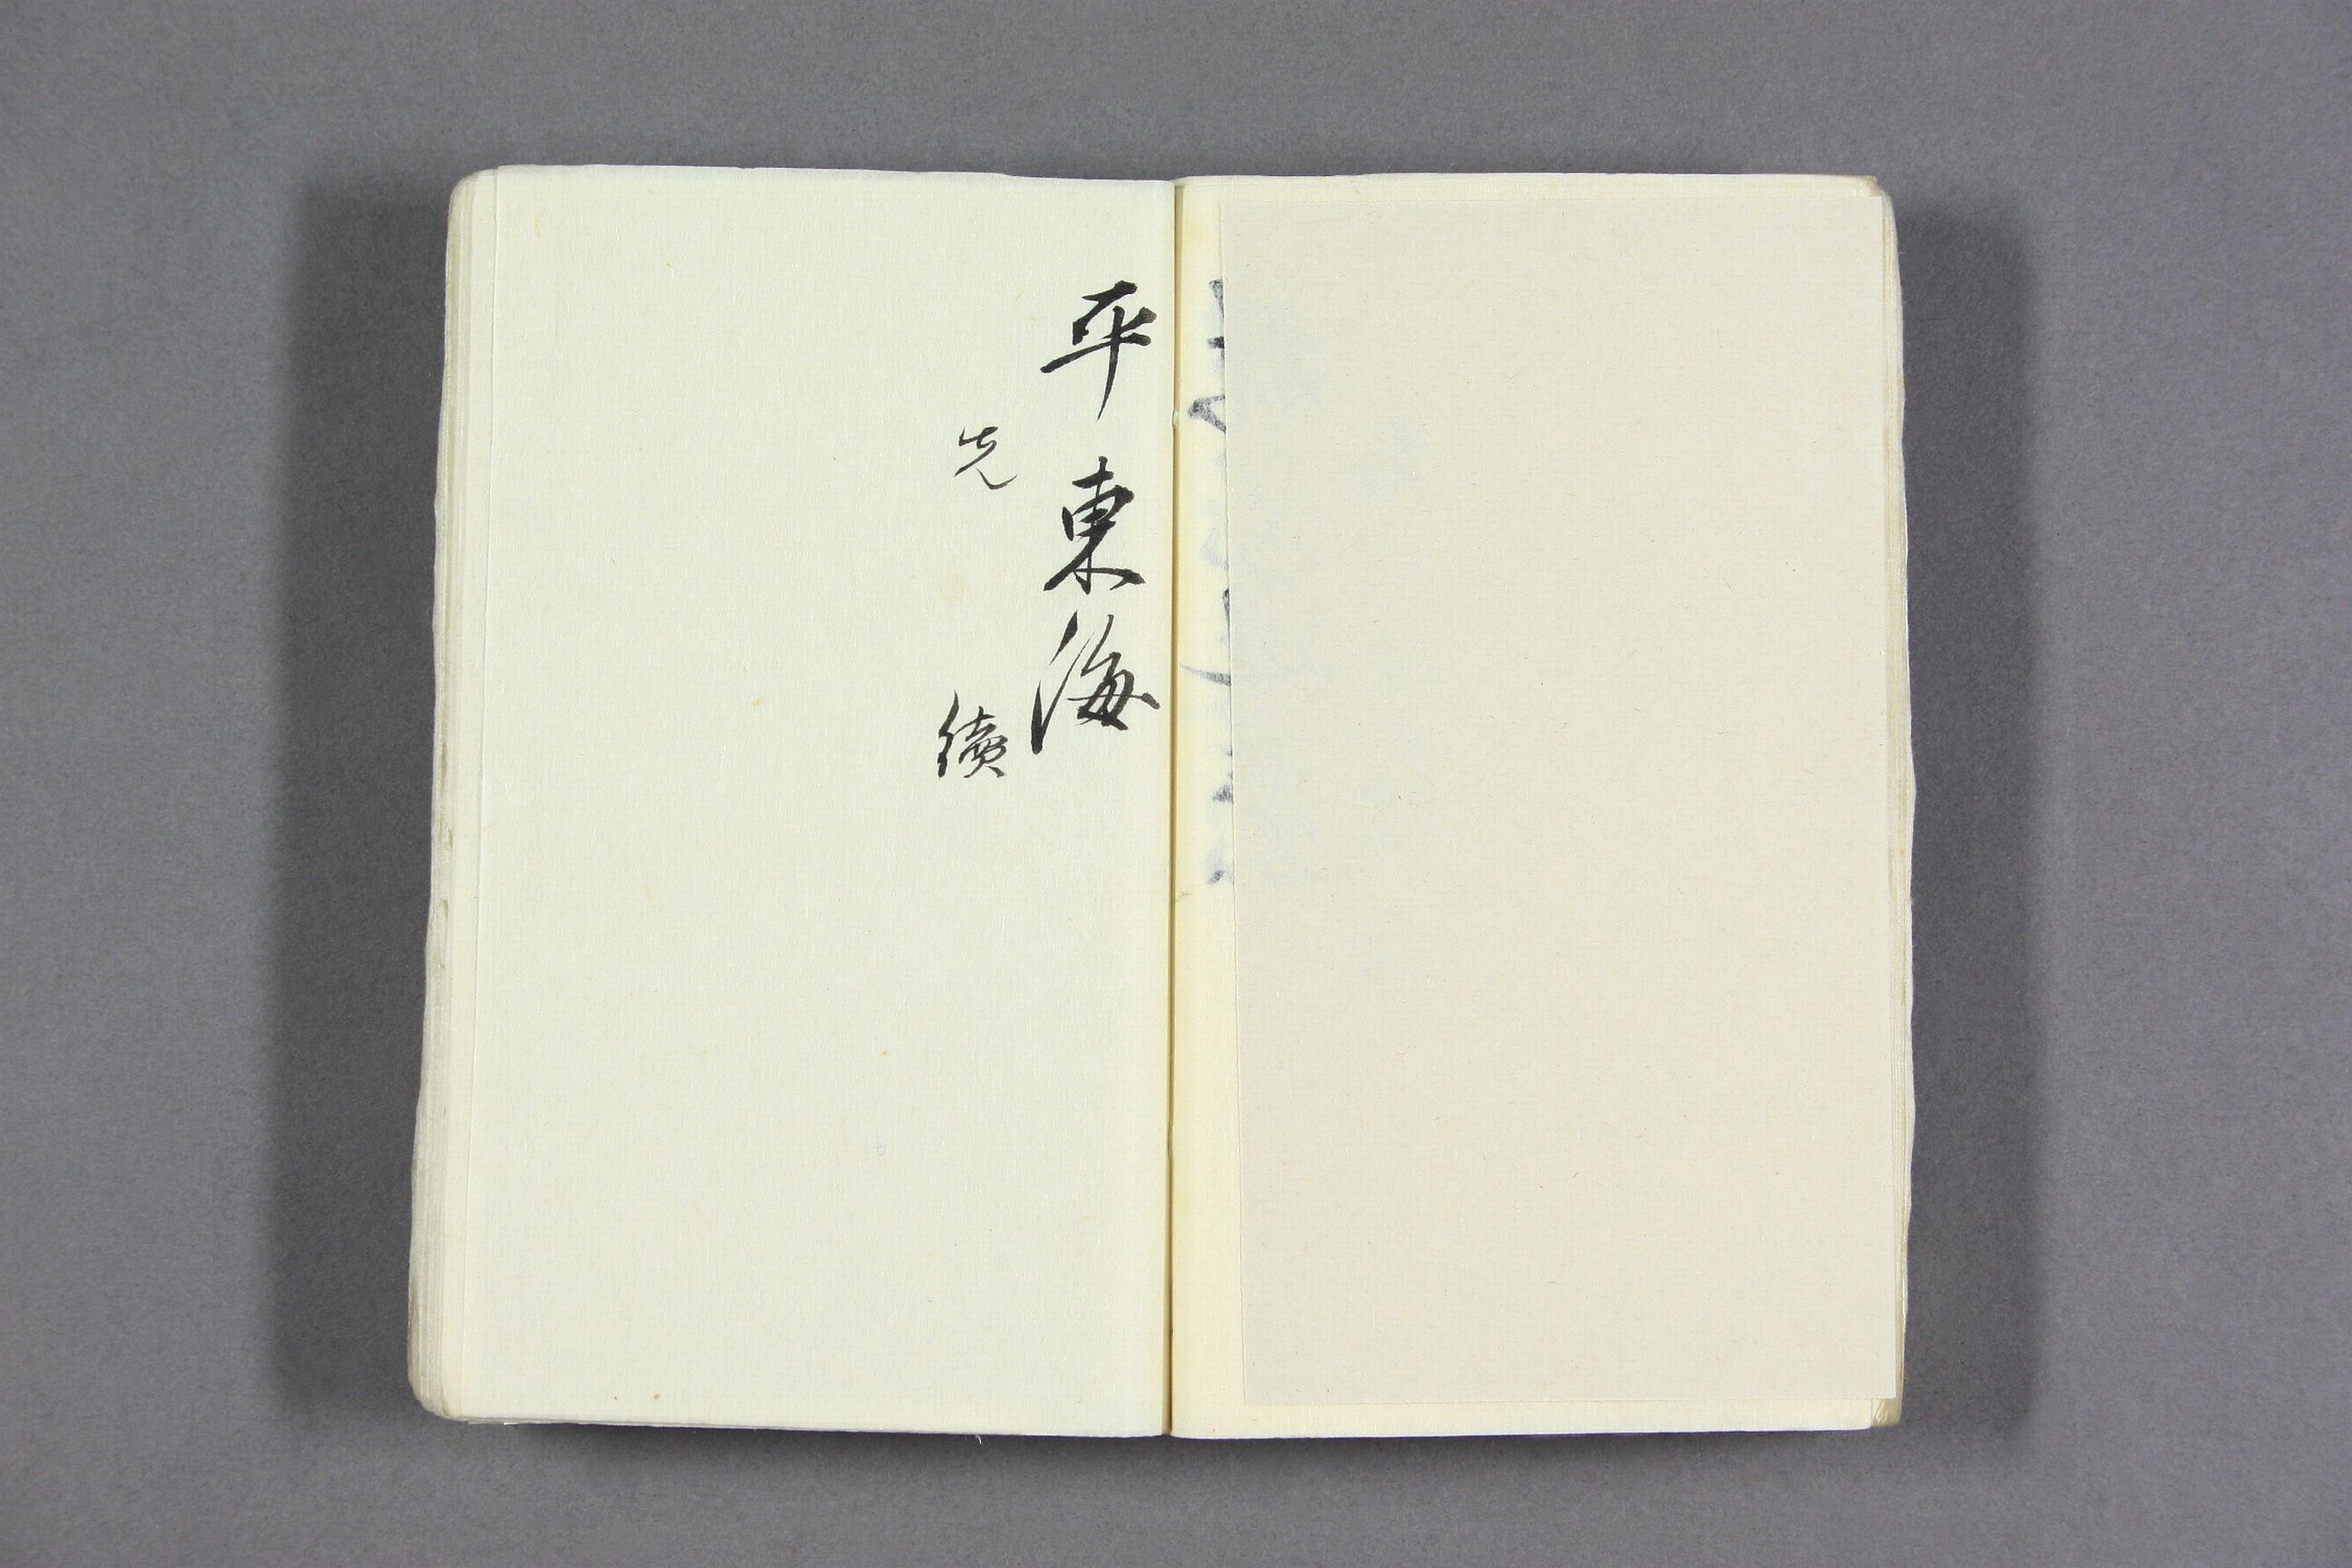 平東海
先續